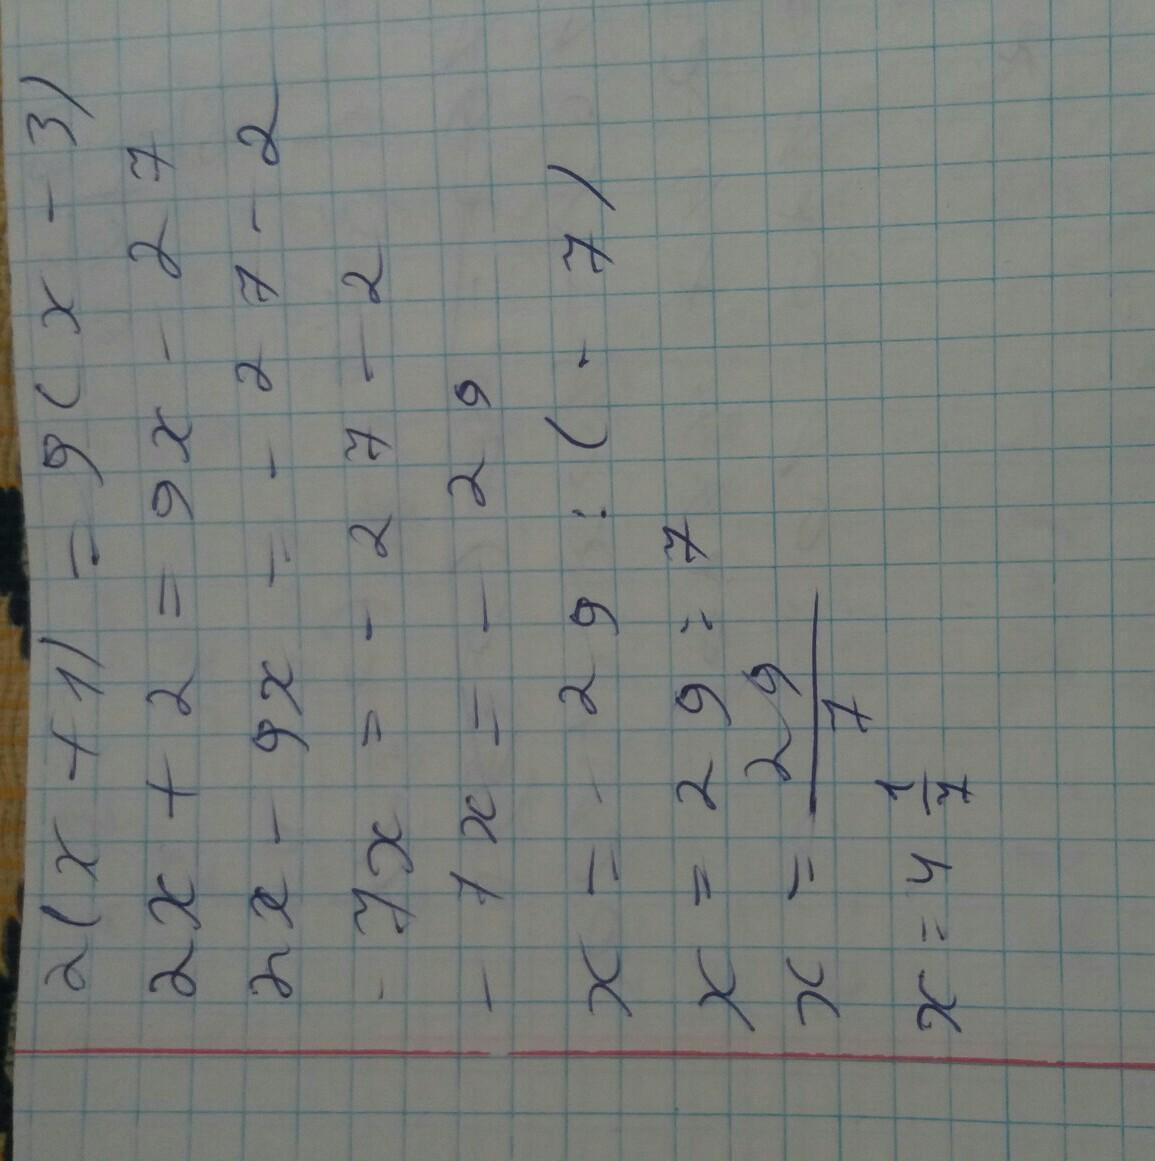 2(x+1)=9(x-3)
2x+2=9x-27
2x-9x=-27-2
-7x=-27-2
-7x=-29
x=-29:(-7)
x=29:7
x=29/7
x=4 1/7